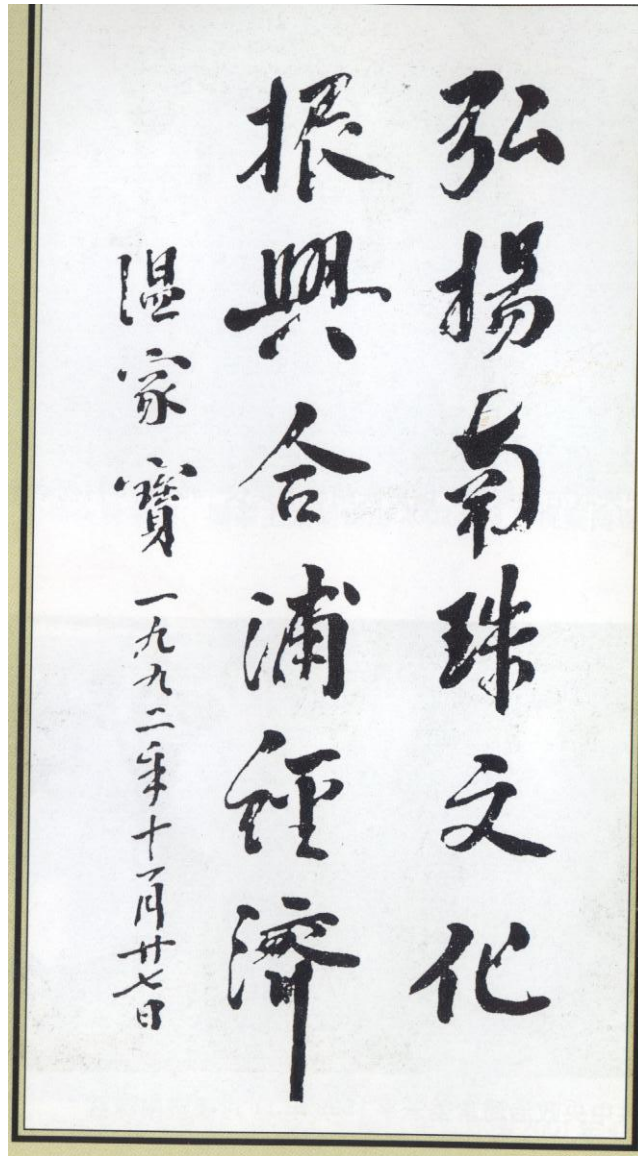 弘揚南珠文化
振興合浦經濟
溫家寶 一九九二年十一月廿七日